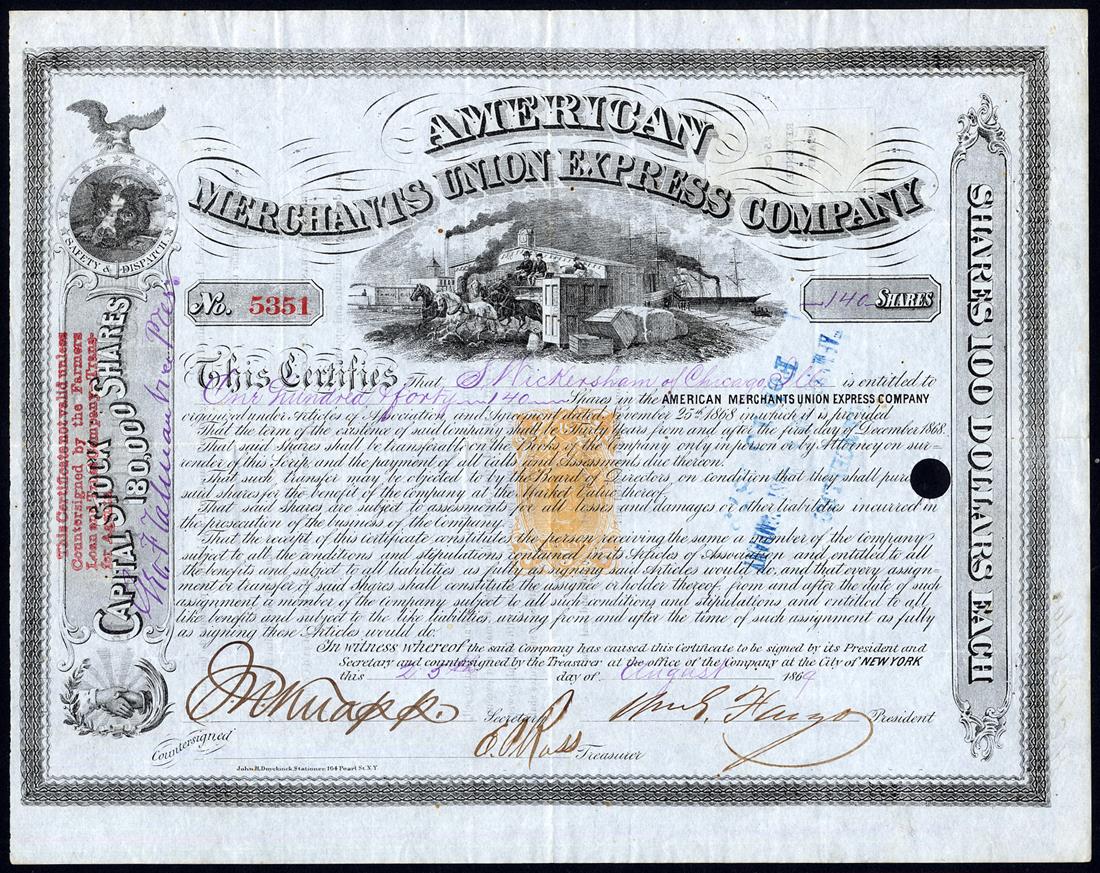 AMERICAN
MERCHANTS UNION EXPRESS COMPANY
SAFETY & DISPATCH
No. 5351
140 SHARES
This Certifies That S Wickersham of Chicago Ills is entitled to
One hundred & forty 140 Shares in the AMERICAN MERCHANTS UNION EXPRESS COMPANY
organized under Articles of Association and Agreement dated November 25th 1868 in which it is provided
That the term of the existence of said Company shall be Thirty Years from and after the first day of December 1868.
That said Shares shall be transferable on the Books of the Company only in person or by Attorney on sur-
render of this Scrip and the payment of all Calls and Assessments due thereon.
That such transfer may be objected to by the Board of Directors, on condition that they shall purchase
said shares for the benefit of the Company at the Market Value thereof.
That said Shares are subject to assessments for all losses and damages or other liabilities incurred in
the prosecution of the business of the Company.
That the receipt of this certificate constitutes the person receiving the same a member of the Company
subject to all the conditions and stipulations contained in its Articles of Association and entitled to all
the benefits and subject to all liabilities as fully as signing said Articles would do, and that every assign-
ment or transfer of said Shares shall constitute the assignee or holder thereof, from and after the date of such
assignment a member of the Company subject to all such conditions and stipulations and entitled to all
like benefits and subject to the like liabilities, arising from and after the time of such assignment as fully
as signing these Articles would do.
In witness whereof the said Company has caused this Certificate to be signed by its President and
Secretary and countersigned by the Treasurer at the office of the Company at the City of NEW YORK
this 25th day of August 1869
J.N. Knapp Secretary Wm G. Fargo President
Countersigned E. P. Ross Treasurer
John H. Duyckinck Stationer 164 Pearl St. N.Y
CAPITAL STOCK 180,000 SHARES
This Certificate not valid unless
Countersigned by the Farmers
Loan and Trust Company, Trans-
fer Agents
SHARES 100 DOLLARS EACH